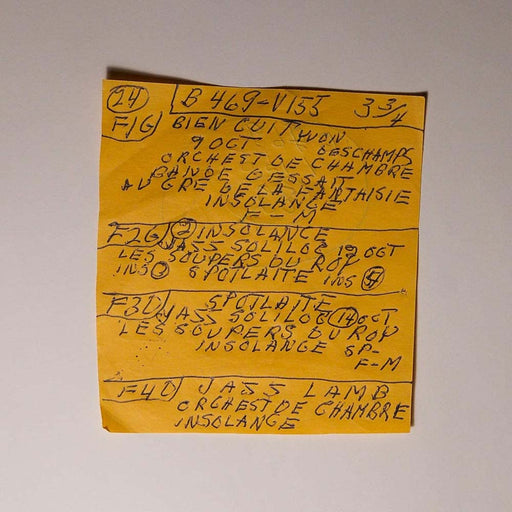 24 B 469-V155 3 3/4
F1G BIEN CUIT YVON
9 OCT DESCHAMPS
ORCHEST DE CHAMBRE
BANDE DESSAIT
AU GRE DE LA FANTAISIE
INSOLANGE
F-M
F2G 2 INSOLANGE
JASS SOLILOG 12 OCT
LES SOUPERS DU ROY
INS SPOTLAITE INS
F3D SPOTLAITE
JASS SOLILOG 14 OCT
LES SOUPERS DU ROY
INSOLANGE SP-
F-M
F4D JASS LAMB
ORCHEST DE CHAMBRE
INSOLANGE